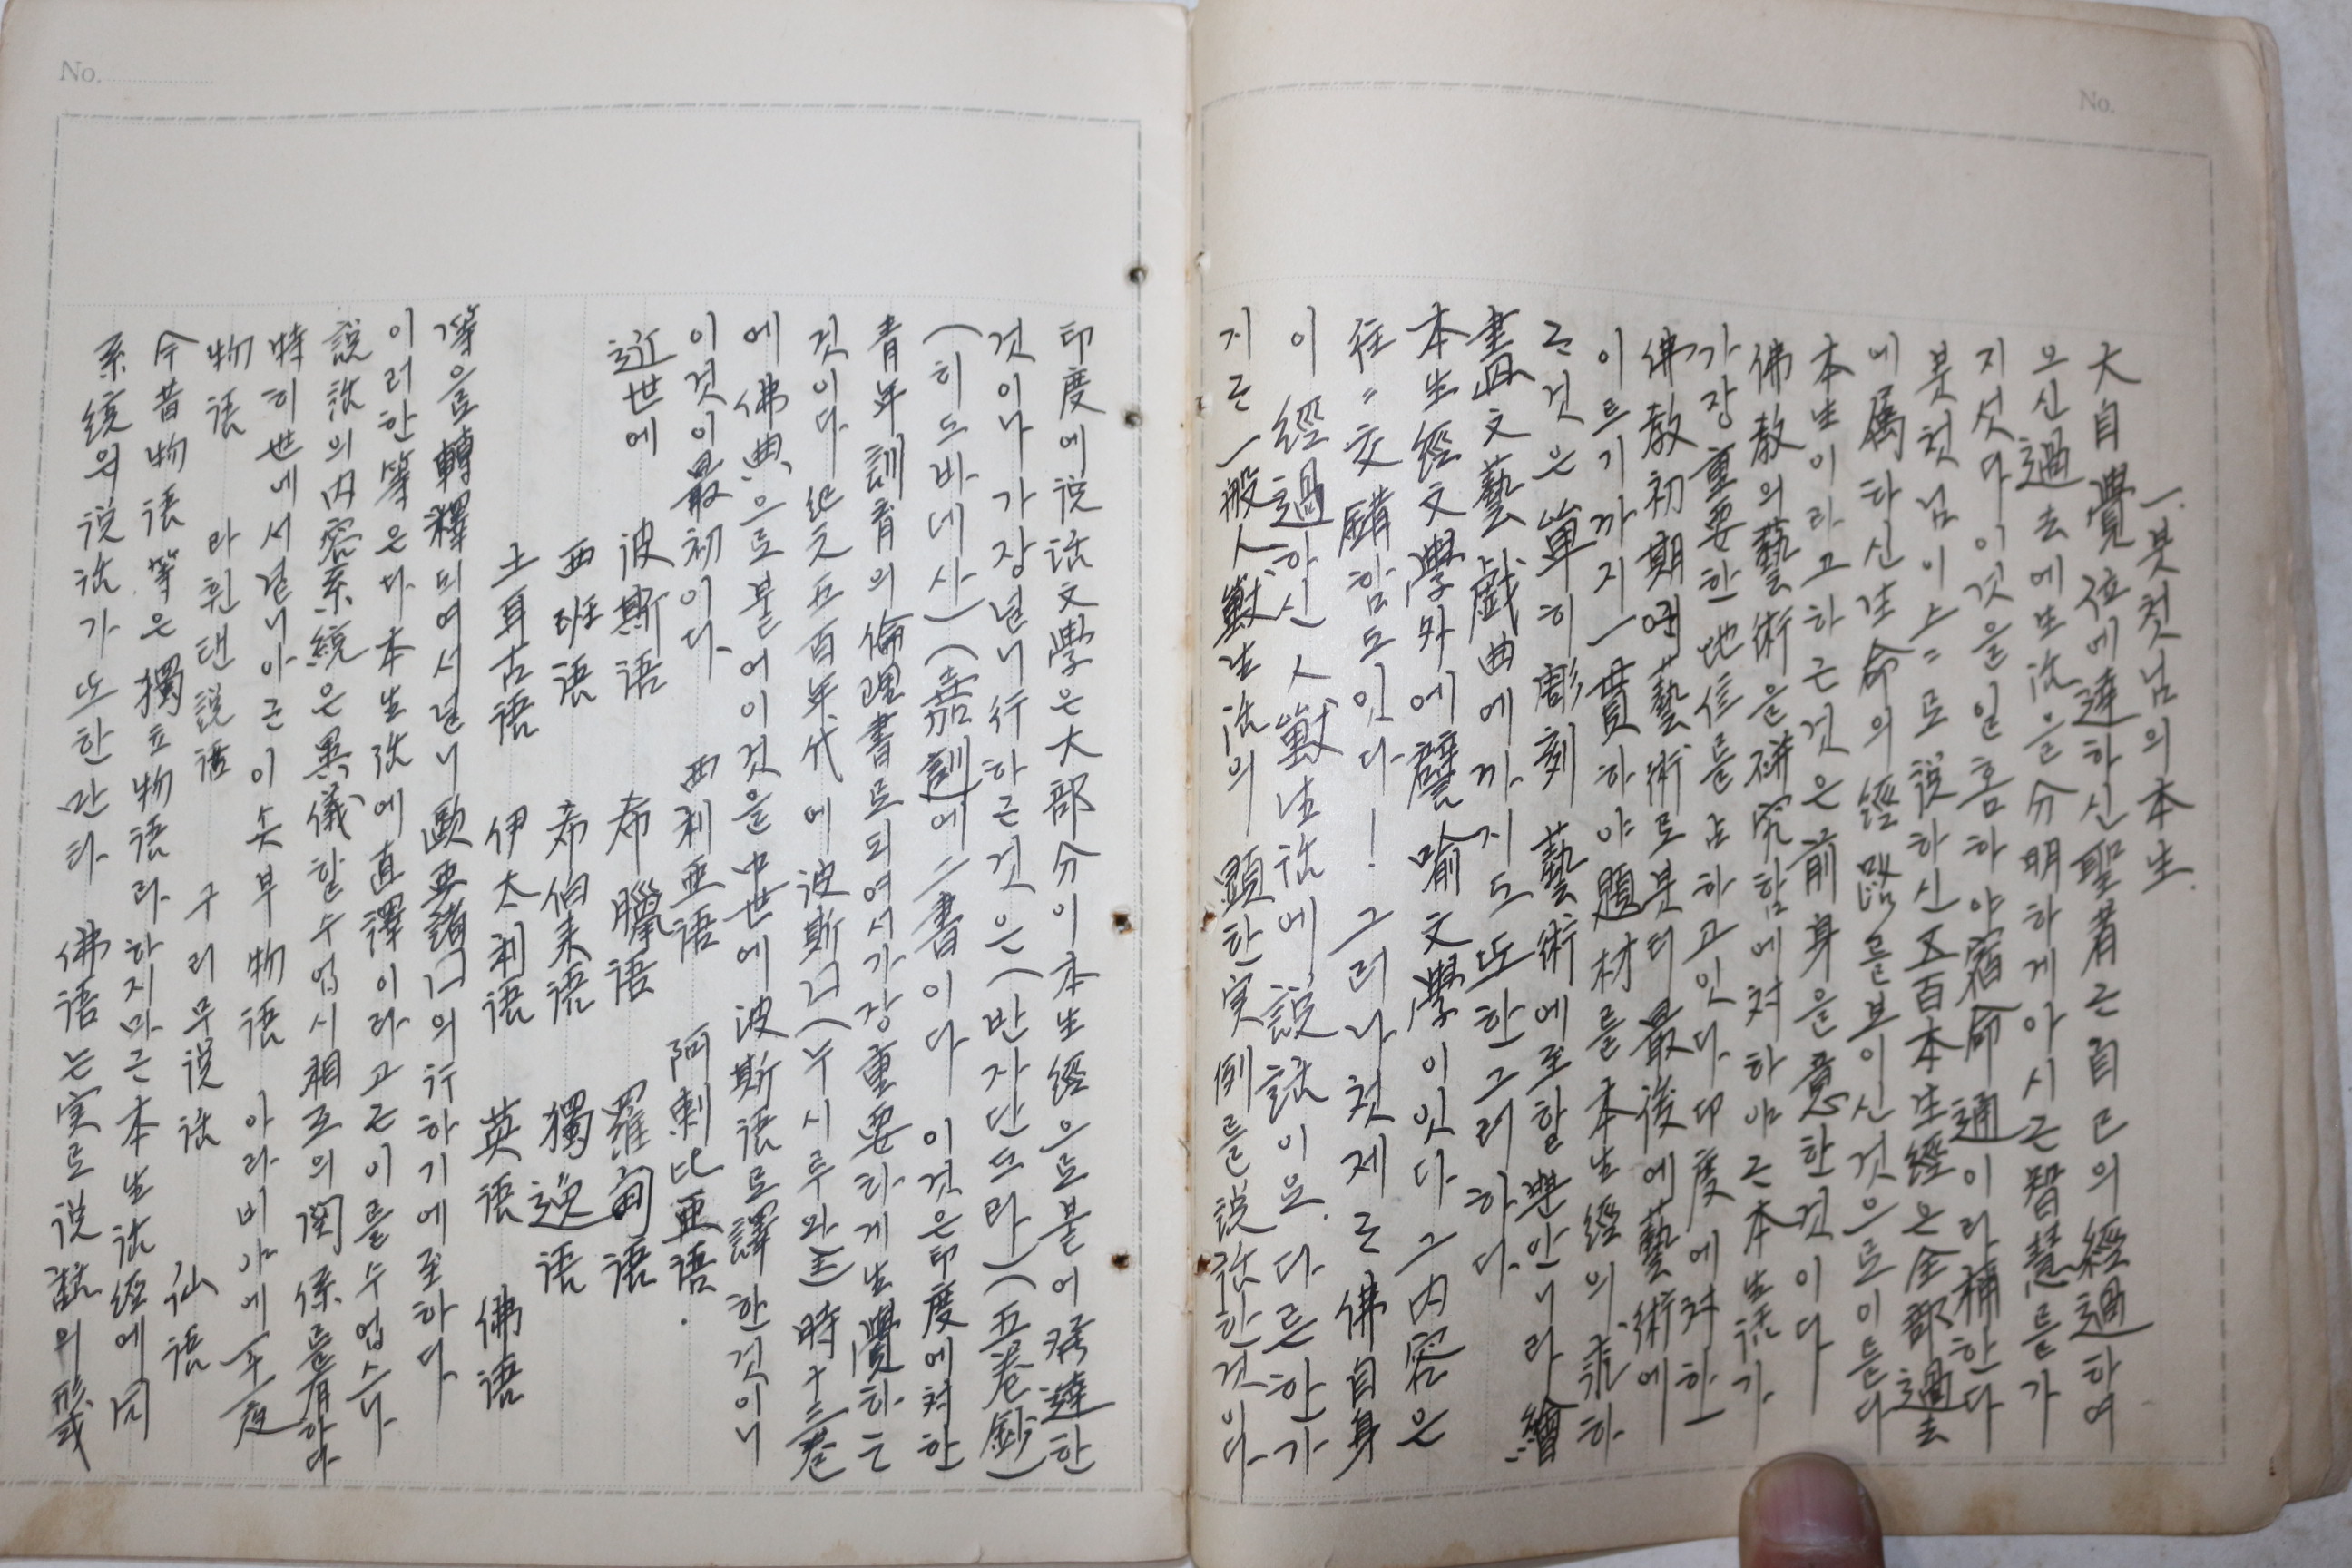 No.
一. 붓첫님의 本生.
大自覺位에達하신聖者는自己의經過하여
오신過去에生活을分明하게아시는智慧를가
지섯다이것을일홈하야宿命通이라稱한다
붓첫님이스스로說하신五百本生經은全部過去
에屬하신生命의經歷를보이신것으로이른다
本生이라고하는것은前身을意한것이다
佛教의藝術을硏究함에처하야는本生話가
가장重要한地位를占하고잇다. 印度에처한
佛教初期의藝術로붓터最後에藝術에
이르기까지一貫하야題材를本生經의求하
는것은單히彫刻藝術에至할뿐안니라繪
畵文藝戲曲에까지도또한그러하다.
本生經文學外에譬喩文學이잇다. 그內容은
往〃交錯함도잇다! 그러나첫제는佛自身
이經過하신人獸生活에說話이오. 다른한가
지는一般人獸生活의顯한実例를説話한것이다.
No.
印度에说話文學은大部分이本生經으로붙어發達한
것이나가장널니行하는것은(반자단드라)(五卷鈔)
(히도바데사)(嘉訓)에二書이다 이것은印度에처한
青年訓育의倫理書로되여서가장重要타게生覺하는
것이다. 纪元五百年代에波斯囗(누시루와)王時十三卷
에佛典으로붙어이것을中世에波斯语로譯한것이니
이것이最初이다. 西利亜语 阿剌比亜语.
近世에 波斯语 希臘语 羅甸语
西班语 希伯来语 獨逸语
土耳古语 伊太利语 英语 佛语
等으로轉釋되여서널니歐亜諸囗의行하기에至하다.
이러한等은다本生話에直譯이라고는이를수업스나.
説話의內容系統은異儀할수업시相互의関係를有하다
特히世에서널니아는이솟부物语 아라비야에千夜
物语 라휜탠說话 구리무说话 仙语
今昔物语等은獨立物语라. 하지마는本生話经에同
系統의说話가또한만타. 佛语는実로说話의形式